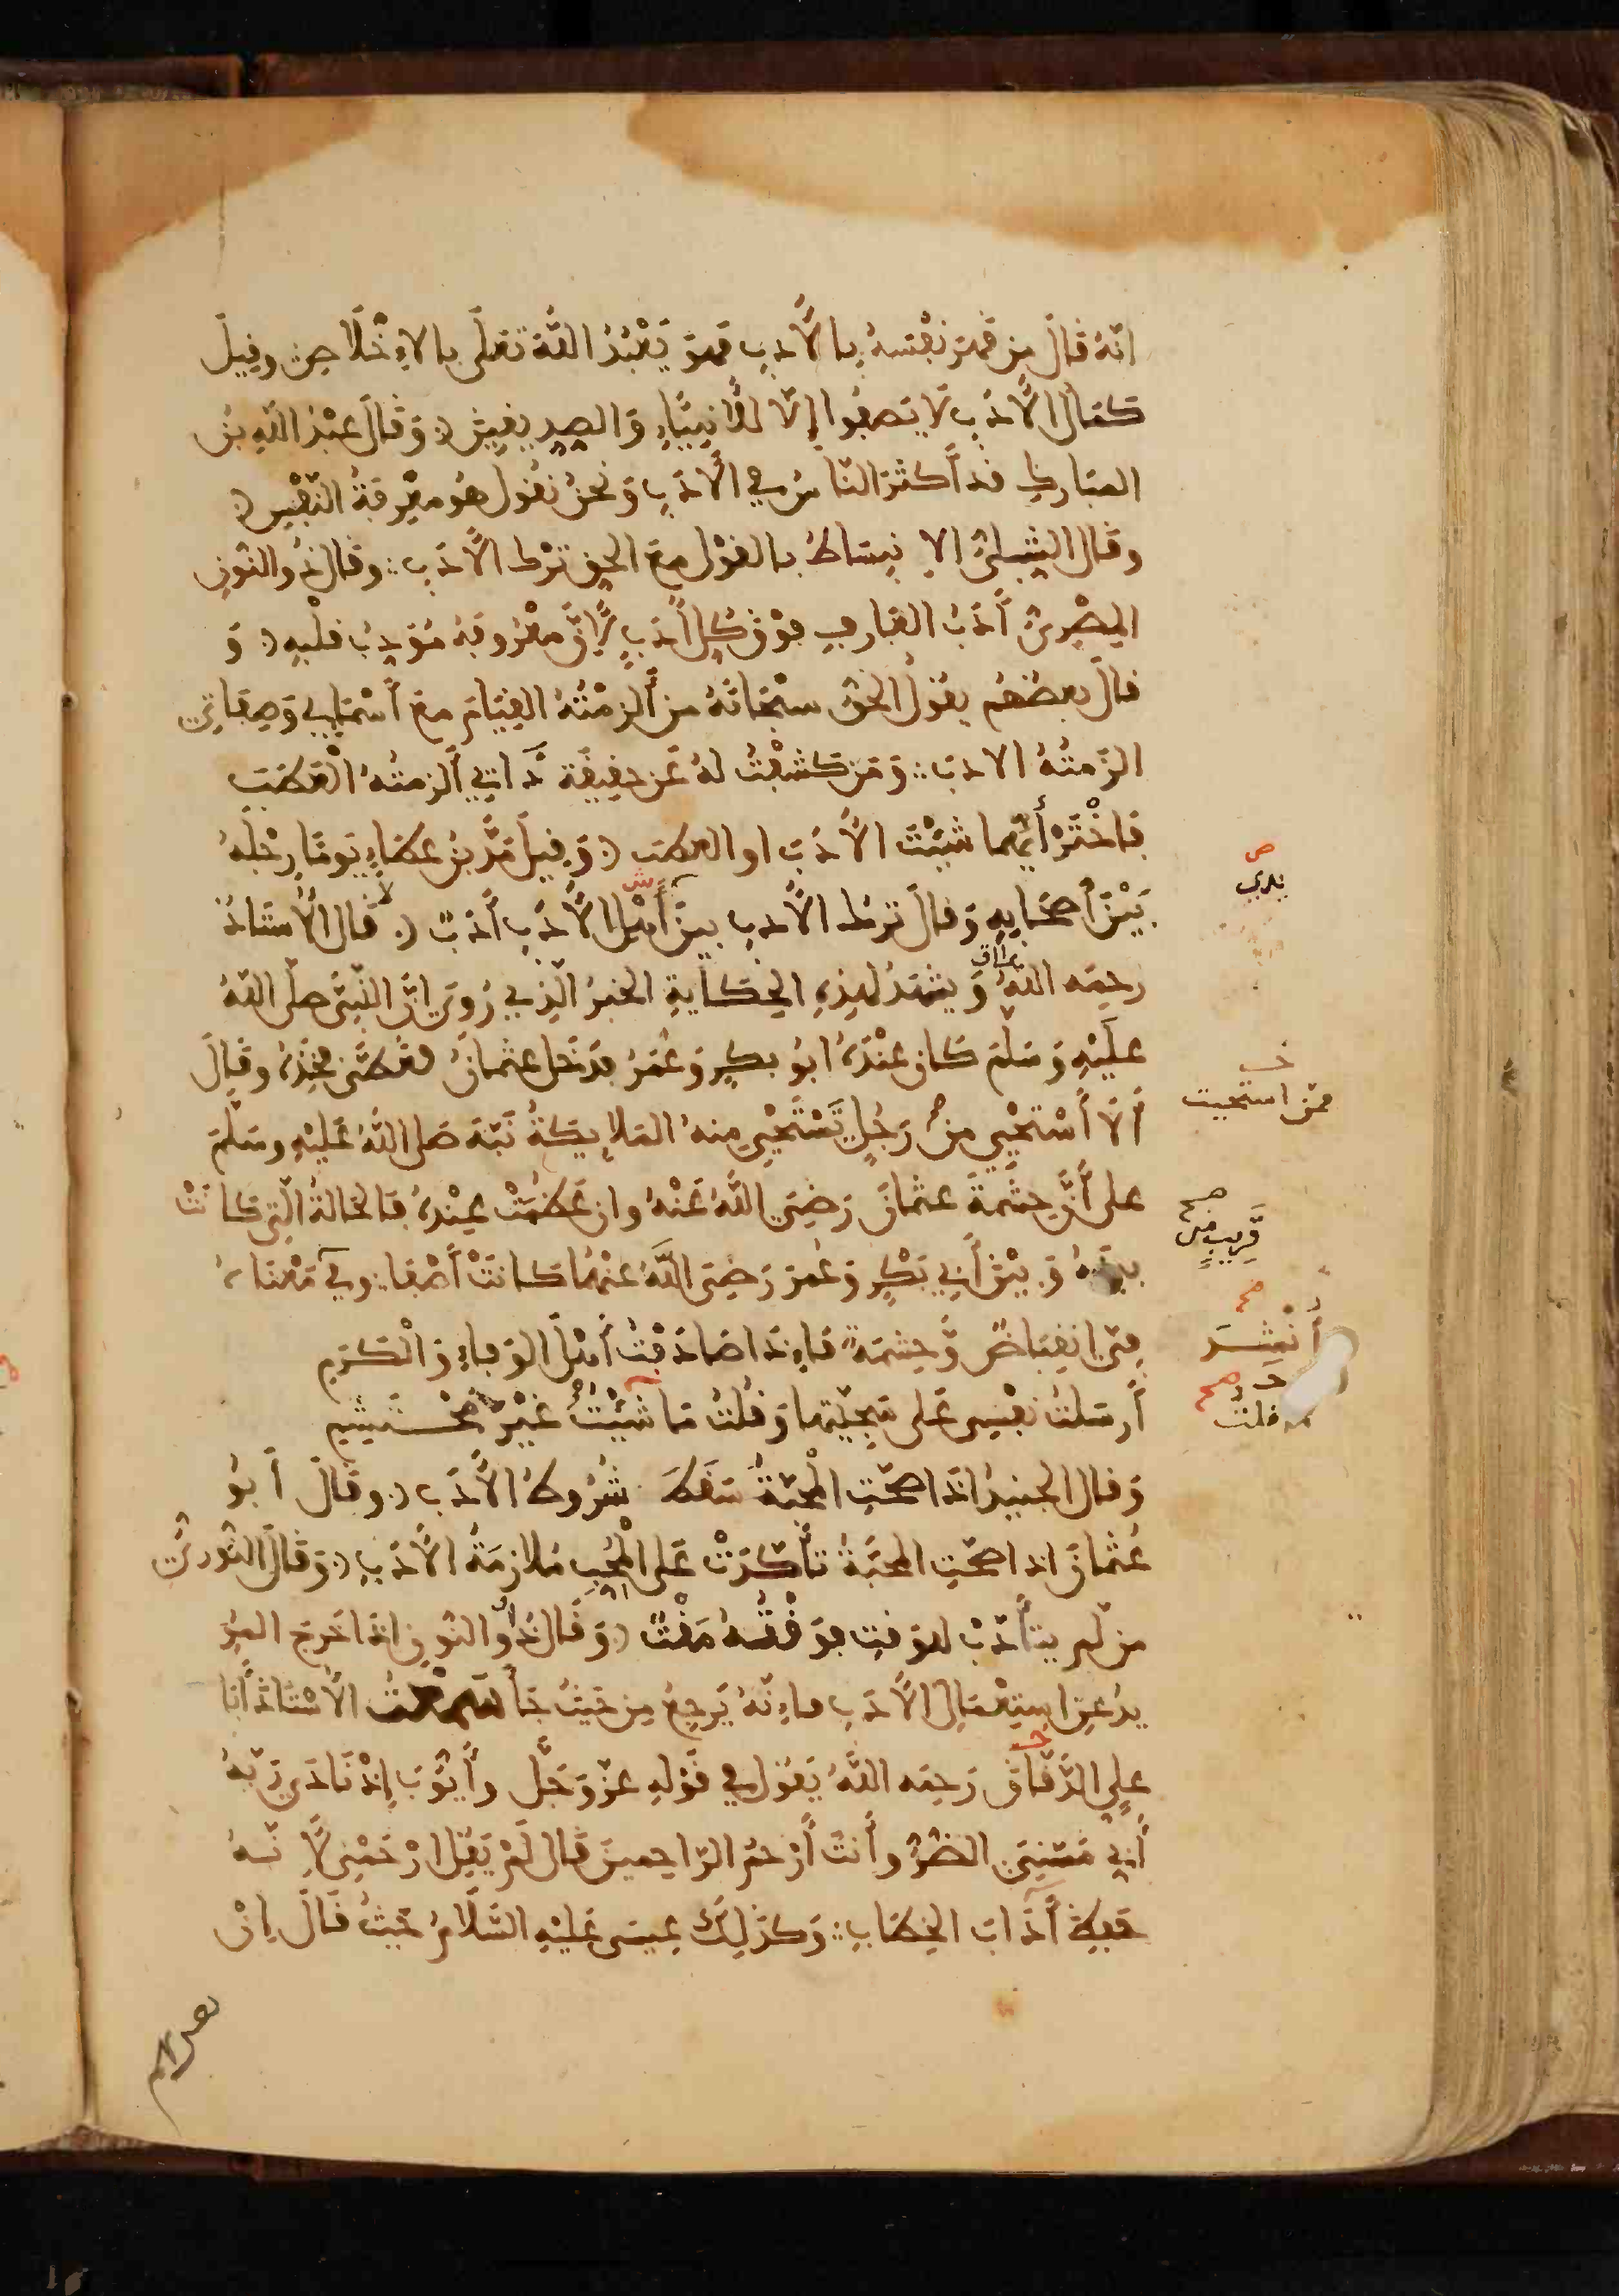 انه قال من قهر نفسه بالأدب فهو يعبد الله تعلى بالإخلاص وقيل
كمال الأدب لا يصفوا إلا للأنبياء والصديقين وقال عبد الله بن
المبارك قد أكثر الناس في الأدب ونحن نقول هو معرفة النفس
وقال الشبلي الانبساط بالقول مع الحق ترك الأدب وقال ذو النون
المصري أدب العارف فوق كل أدب لأن معروفه مؤدب قلبه و
قال بعضهم يقول الحق سبحانه من ألزمته القيام مع أسمايي وصفاتي
الزمته الادب ومن كشفت له عن حقيقة ذاتي ألزمته العطب
فاختر أيهما شئت الأدب او العطب وقيل مد بن عطاء يوما رجله
بين أصحابه وقال ترك الأدب بين أهل الأدب أدب قال الأستاذ
رحمه الله ويشهد لهذه الحكاية الخبر الذي روي ان النبي صلى الله
عليه وسلم كان عنده ابو بكر وعمر فدخل عثمان فغطى فخذه وقال
ألا أستحيي من رجل تستحيي منه الملايكة نبه صلى الله عليه وسلم
على أن حشمة عثمان رضي الله عنه وان عظمت عنده فالحالة التي كانت
بينه وبين أبي بكر وعمر رضي الله عنهما كانت أصفا وفي معناه
في انقباض وحشمة فإذا صادفت أهل الوفاء والكرم
أرسلت نفسي على سجيتها وقلت ما شئت غير محتشم
وقال الجنيد اذا صحت المحبة سقط شروط الأدب وقال أبو
عثمان اذا صحت المحبة تأكدت على المحب ملازمة الأدب وقال النوري
من لم يتأدب للوقت فوقته مقت وقال ذو النون اذا خرج المر
يد عن استعمال الأدب فإنه يرجع من حيث جا سمعت الأستاذ أبا
علي الدقاق رحمه الله يقول في قوله عز وجل وأيوب إذ نادى ربه
أني مسني الضر وأنت أرحم الراحمين قال لم يقل ارحمني لأنه
حفظ أداب الخطاب وكذلك عيسى عليه السلام حيث قال إن
ص
يدي
خ
ممن استحيت
صح
قريب من
صح
أنشد
صح
قلت